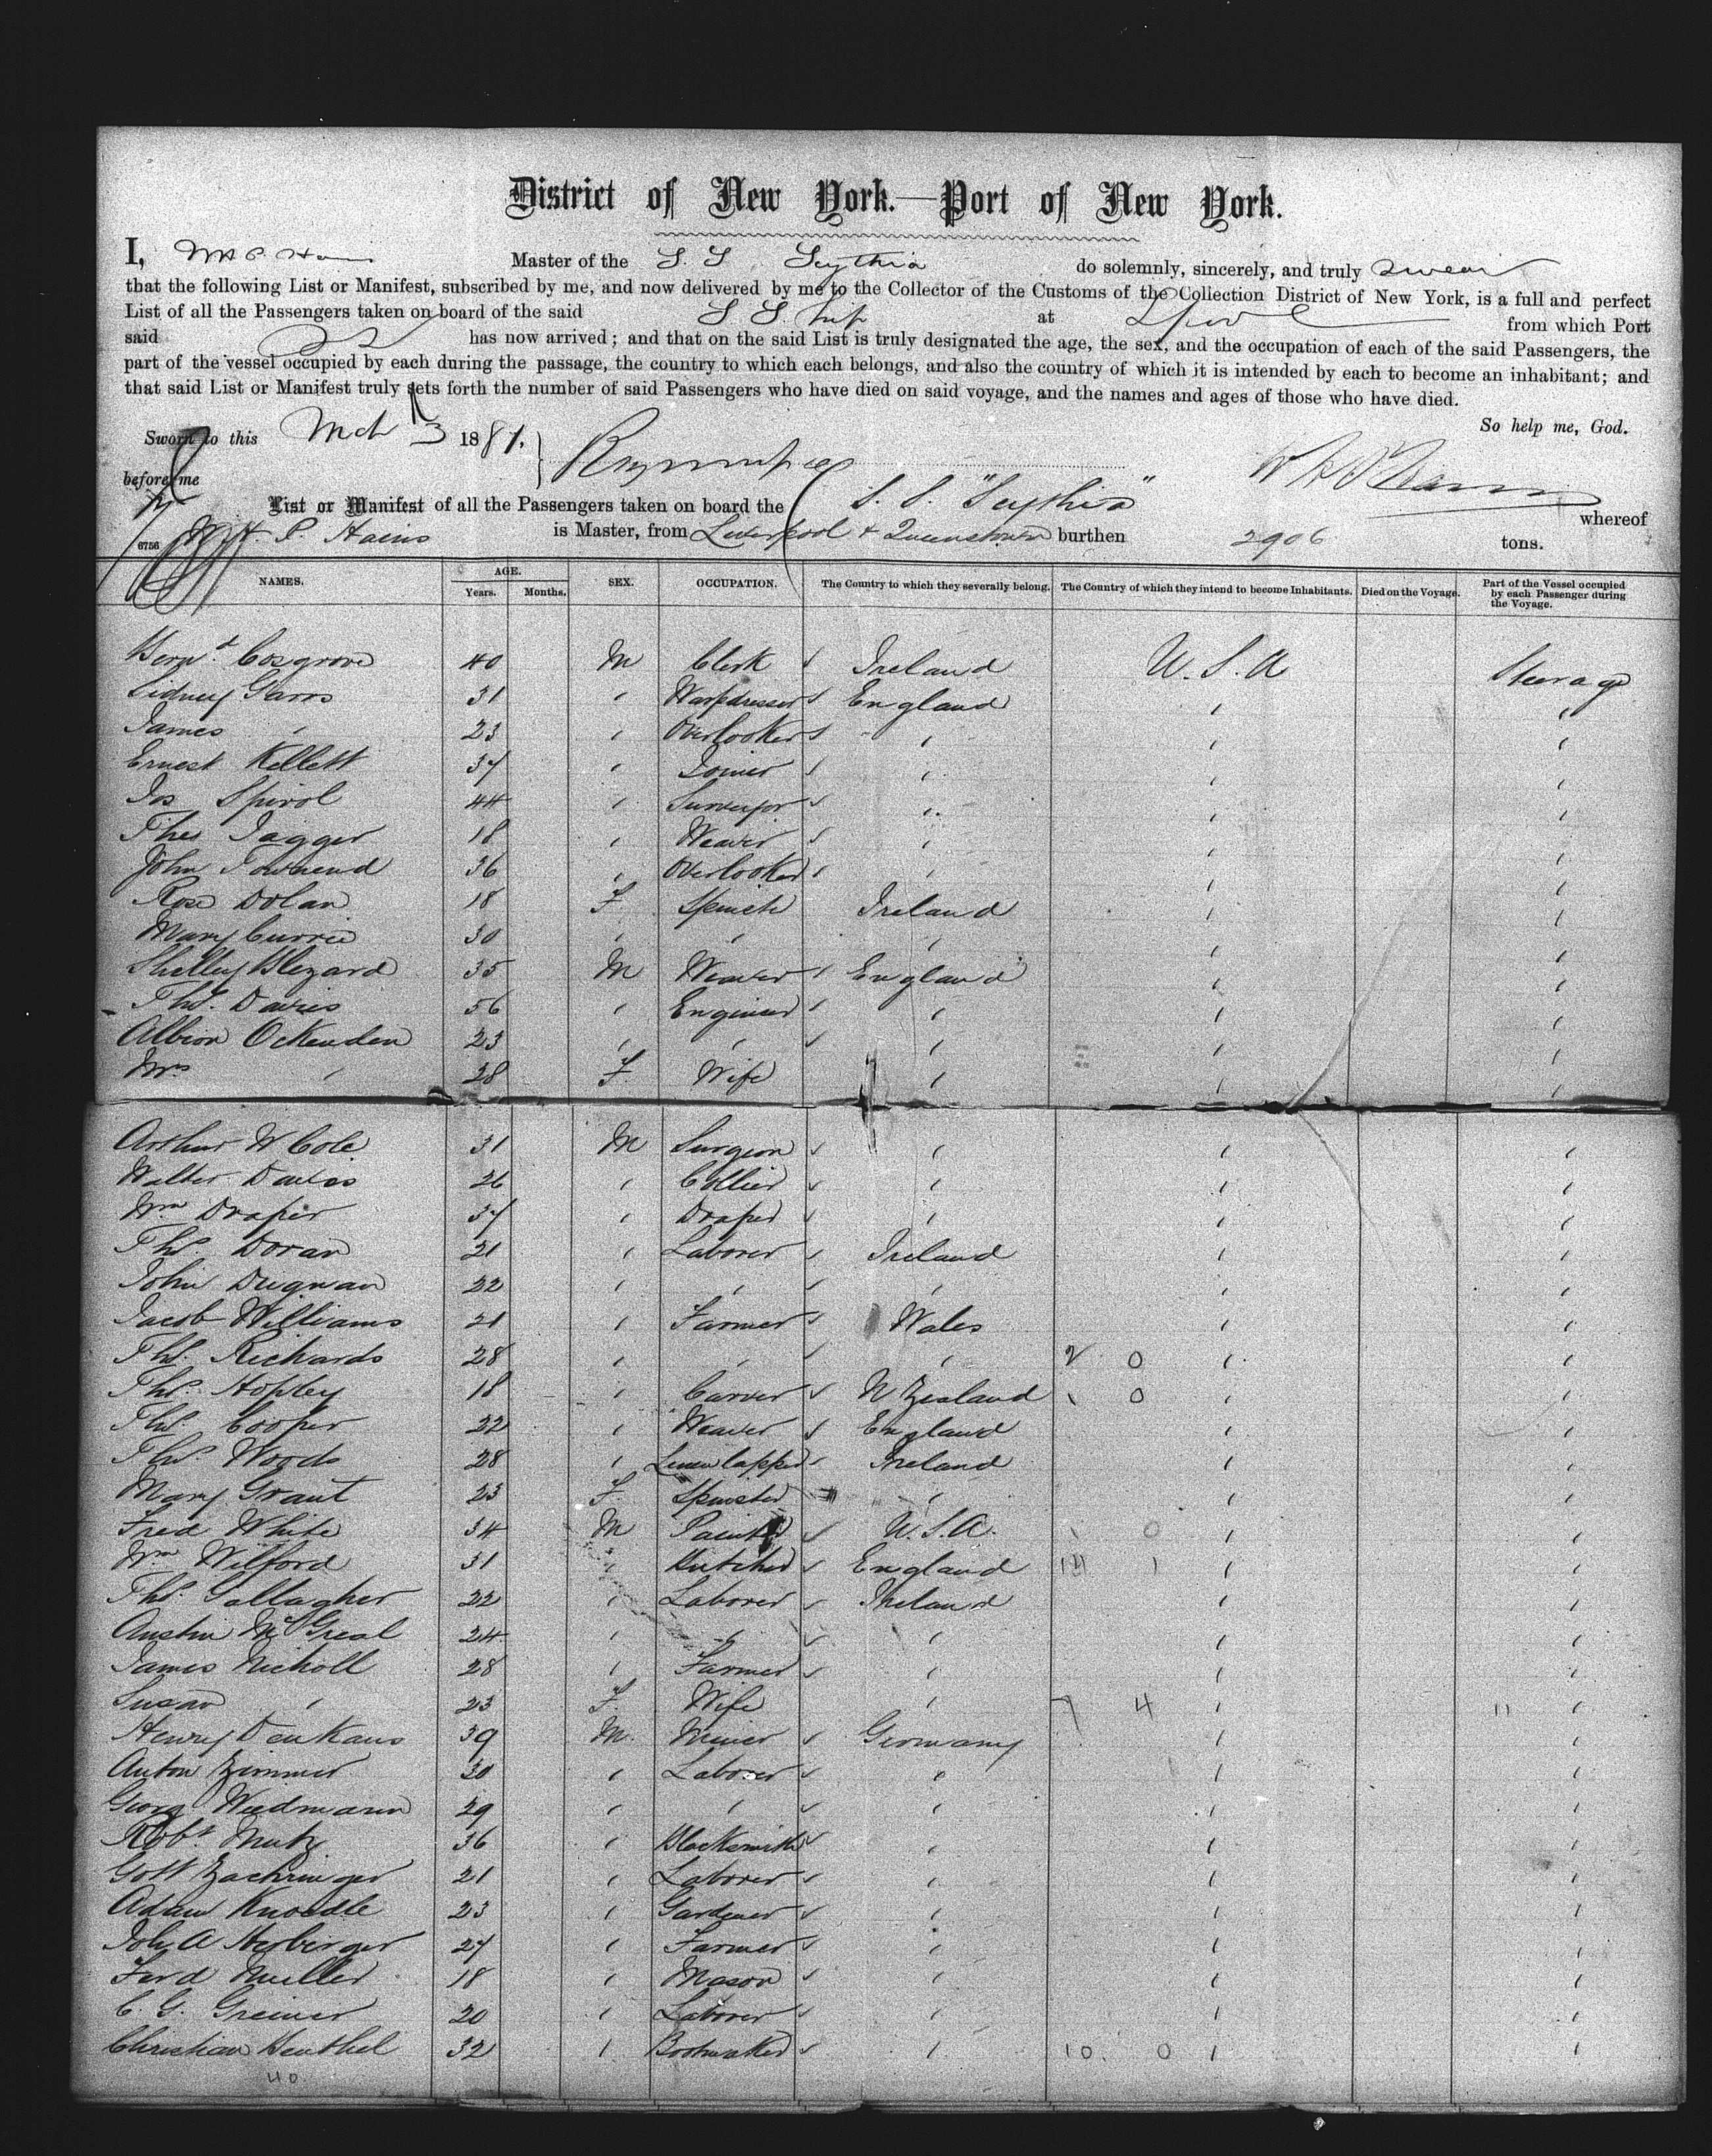 District of New York.—Port of New York.
I, Master of the S. S. Scythia do solemnly, sincerely, and truly swear
that the following List or Manifest, subscribed by me, and now delivered by me to the Collector of the Customs of the Collection District of New York, is a full and perfect
List of all the Passengers taken on board of the said S S at from which Port
said has now arrived; and that on the said List is truly designated the age, the sex, and the occupation of each of the said Passengers, the
part of the vessel occupied by each during the passage, the country to which each belongs, and also the country of which it is intended by each to become an inhabitant; and
that said List or Manifest truly sets forth the number of said Passengers who have died on said voyage, and the names and ages of those who have died.
So help me, God.
Sworn to this Mch 3 1881.
before me
List or Manifest of all the Passengers taken on board the S. S. "Scythia" whereof
6756 W. H. P. Hains is Master, from Liverpool + Queenstown burthen 2906 tons.
NAMES. AGE. Years. Months. SEX. OCCUPATION. The Country to which they severally belong. The Country of which they intend to become Inhabitants. Died on the Voyage. Part of the Vessel occupied by each Passenger during the Voyage.
Bernd. Cosgrove 40 M Clerk Ireland U. S. A Steerage
Sidney 31 " Warpdresser England " "
James " 23 " Overlooker " " "
Ernest Kellett 37 " Joiner " " "
Jos 44 " Surveyor " " "
Thos Jagger 18 " Weaver " " "
John Townend 36 " Overlooker " " "
Rose Dolan 18 F Spinster Ireland " "
Mary Currie 30 " " " " "
Shelley Blezard 35 M Weaver England " "
Thos. Davies 56 " Engineer " " "
Albion Ockenden 23 " " " " "
Mrs " 28 F. Wife " " "
Arthur W Cole 31 M Surgeon " " "
Walter Davies 26 " Collier " " "
Wm Draper 37 " Draper " " "
Thos. Doran 21 " Laborer Ireland " "
John Duignan 22 " " " " "
Jacob Williams 21 " Farmer Wales " "
Thos. Richards 28 " " " 2 0 " "
Thos. Hopley 18 " Carver N Zealand 0 " "
Thos Cooper 22 " Weaver England " "
Thos. Woods 28 " Linen lapper Ireland " "
Mary Grant 23 F. Spinster " " "
Fred White 34 M Painter U. S. A. 0 " "
Wm Wilford 31 " Butcher England 14 1 " "
Thos. Gallagher 22 " Laborer Ireland " "
Austin McGreal 24 " " " " "
James Nicholl 28 " Farmer " " "
Susan " 23 F. Wife " 7 4 " 11 "
Henry Denkaus 39 M. Miner Germany " "
Anton Zimmer 30 " Laborer " " "
Georg Wiedmann 29 " " " " "
Robt Mutz 36 " Blacksmith " " "
Gott Zachringer 21 " Laborer " " "
Adam Knoedle 23 " Gardener " " "
Joh A Herberger 27 " Farmer " " "
Ferd Muller 18 " Mason " " "
C. G. Greiner 20 " Laborer " " "
Christian Henthel 32 " Bootmaker " 10. 0 " "
40